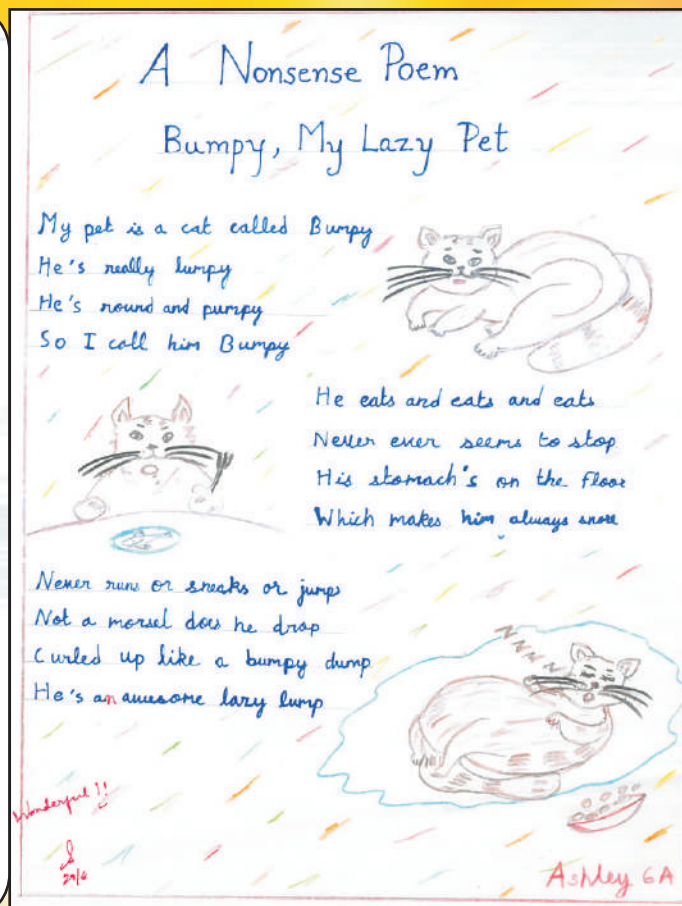 A Nonsense Poem
Bumpy, My Lazy Pet
My pet is a cat called Bumpy
He's really lumpy
He's round and pumpy
So I call him Bumpy
He eats and eats and eats
Never ever seems to stop
His stomach's on the floor
Which makes him always snore
Never runs or sneaks or jumps
Not a morsel does he drop
Curled up like a bumpy dump
He's an awesome lazy lump
NNNNNN
Wonderful !!
29/6
Ashley 6A